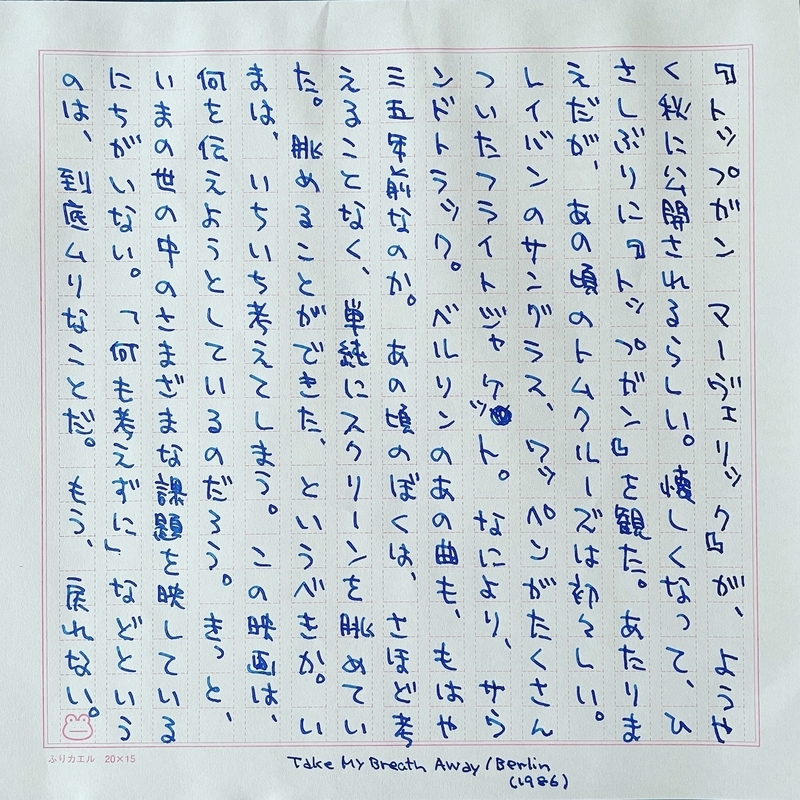 『トップガン　マーヴェリック』が、ようや
く秋に公開されるらしい。懐しくなって、ひ
さしぶりに『トップガン』を観た。あたりま
えだが、あの頃のトムクルーズは初々しい。
レイバンのサングラス、ワッペンがたくさん
ついたフライトジャケット。なにより、サウ
ンドトラック。ベルリンのあの曲も、もはや
三五年前なのか。あの頃のぼくは、さほど考
えることなく、単純にスクリーンを眺めてい
た。眺めることができた、というべきか。い
まは、いちいち考えてしまう。この映画は、
何を伝えようとしているのだろう。きっと、
いまの世の中のさまざまな課題を映している
にちがいない。「何も考えずに」などという
のは、到底ムリなことだ。もう、戻れない。
ふりカエル 20×15
Take My Breath Away/Berlin
(1986)